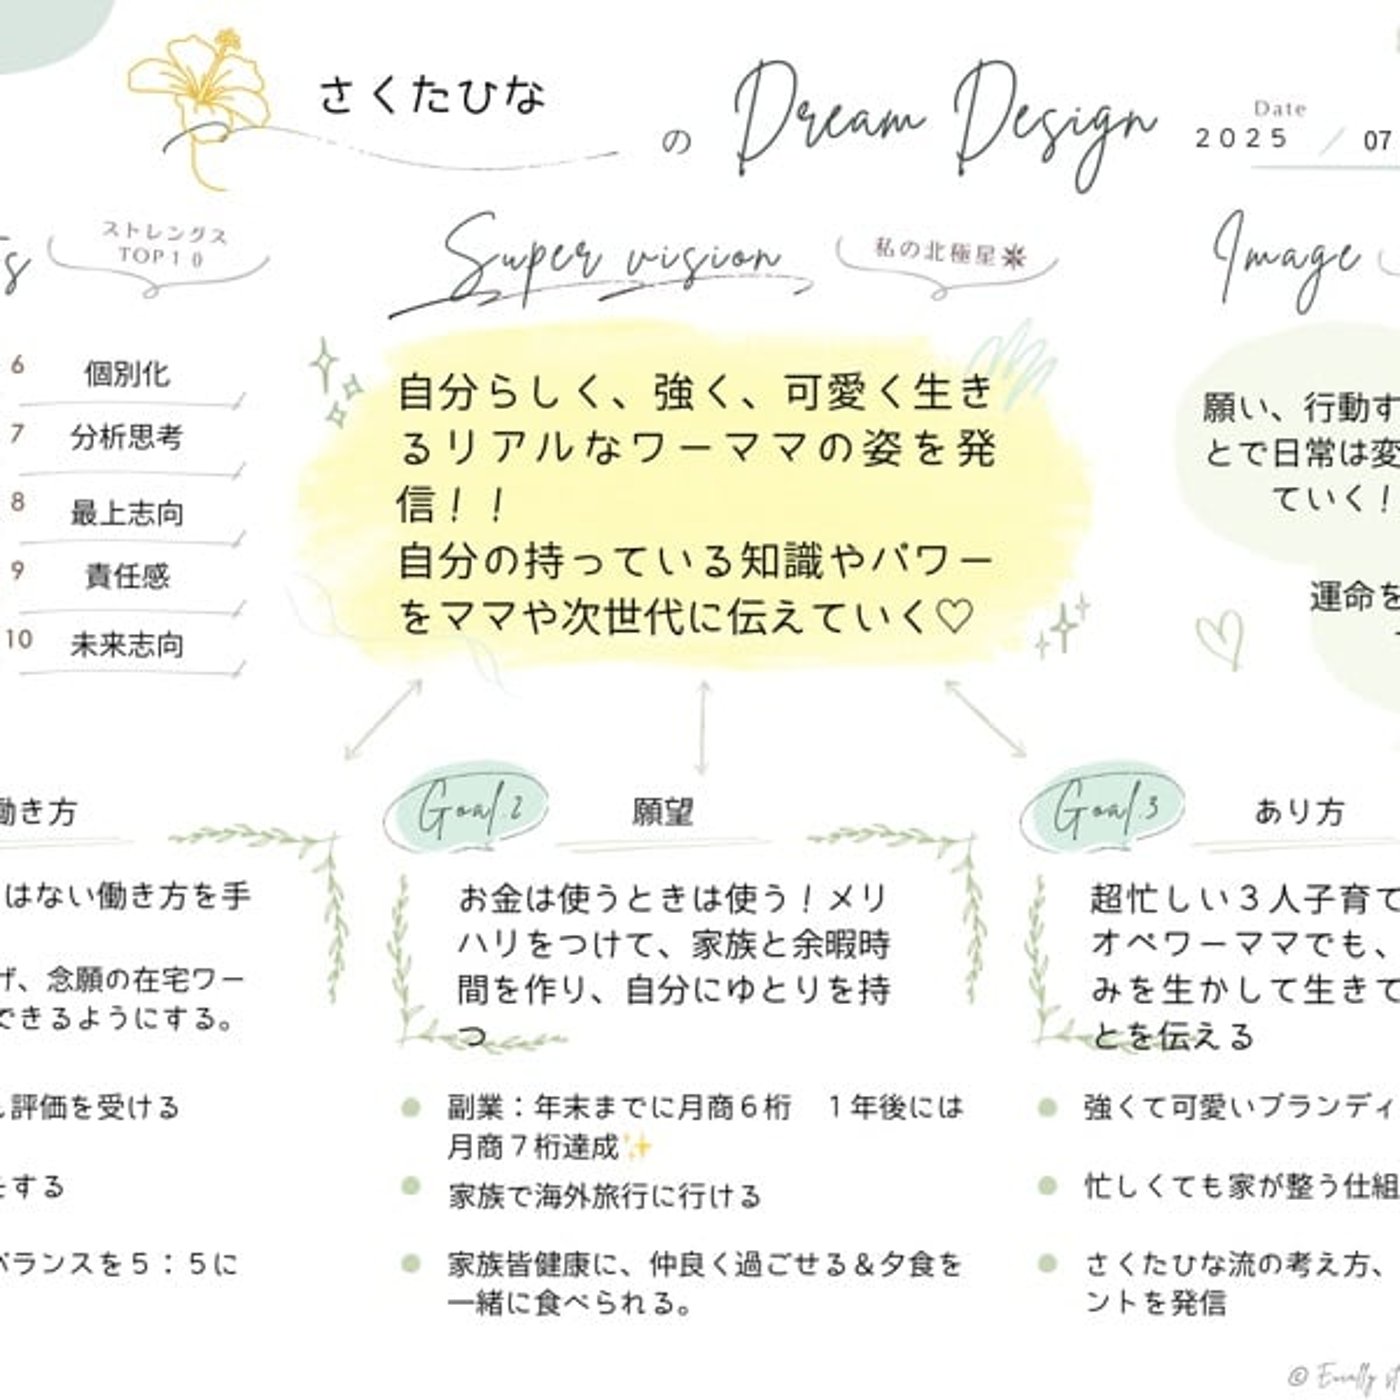 さくたひな
の Dream Design
Date
2025 / 07
ストレングス
TOP10
Super vision
私の北極星
Image
6 個別化
7 分析思考
8 最上志向
9 責任感
10 未来志向
自分らしく、強く、可愛く生き
るリアルなワーママの姿を発
信！！
自分の持っている知識やパワー
をママや次世代に伝えていく♡
願い、行動す
とで日常は変
ていく！
運命を
働き方
はない働き方を手
、念願の在宅ワー
できるようにする。
評価を受ける
をする
バランスを５：５に
Goal 2
願望
お金は使うときは使う！メリ
ハリをつけて、家族と余暇時
間を作り、自分にゆとりを持
つ
副業：年末までに月商６桁　１年後には
月商７桁達成✨
家族で海外旅行に行ける
家族皆健康に、仲良く過ごせる＆夕食を
一緒に食べられる。
Goal 3
あり方
超忙しい３人子育て
オペワーママでも、
みを生かして生きて
とを伝える
強くて可愛いブランディ
忙しくても家が整う仕組
さくたひな流の考え方、
ントを発信
©